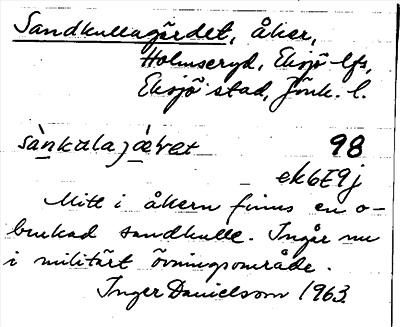 Sandkullagärdet, åker,
Holmseryd, Eksjö lfs,
Eksjö stad, Jönk. l.
98
ek6E9j
Mitt i åkern finns en o-
brukad sandkulle. Ingår nu
i militärt övningsområde.
Inger Danielsson 1963